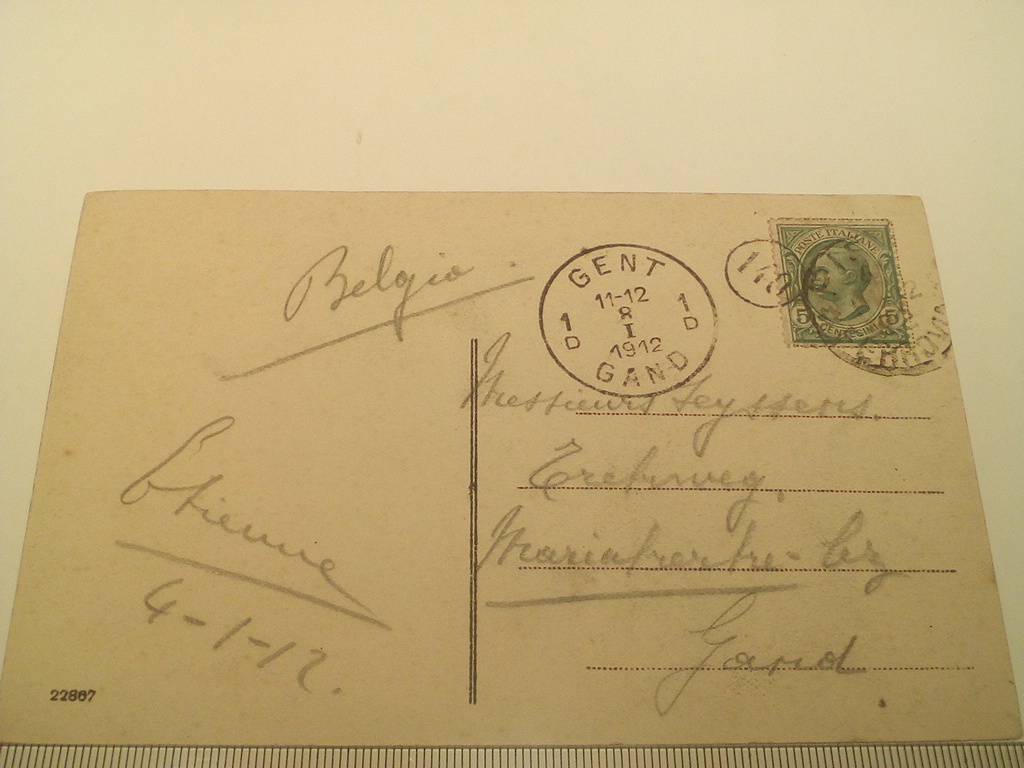 Belgio.
GENT
11-12
1 D
8
I
1 D
1912
GAND
POSTE ITALIANE
5 5
CENTESIMI
Messieurs Seyssens.
Mariakerke-lez
Gand
Etienne
4-1-12.
22867